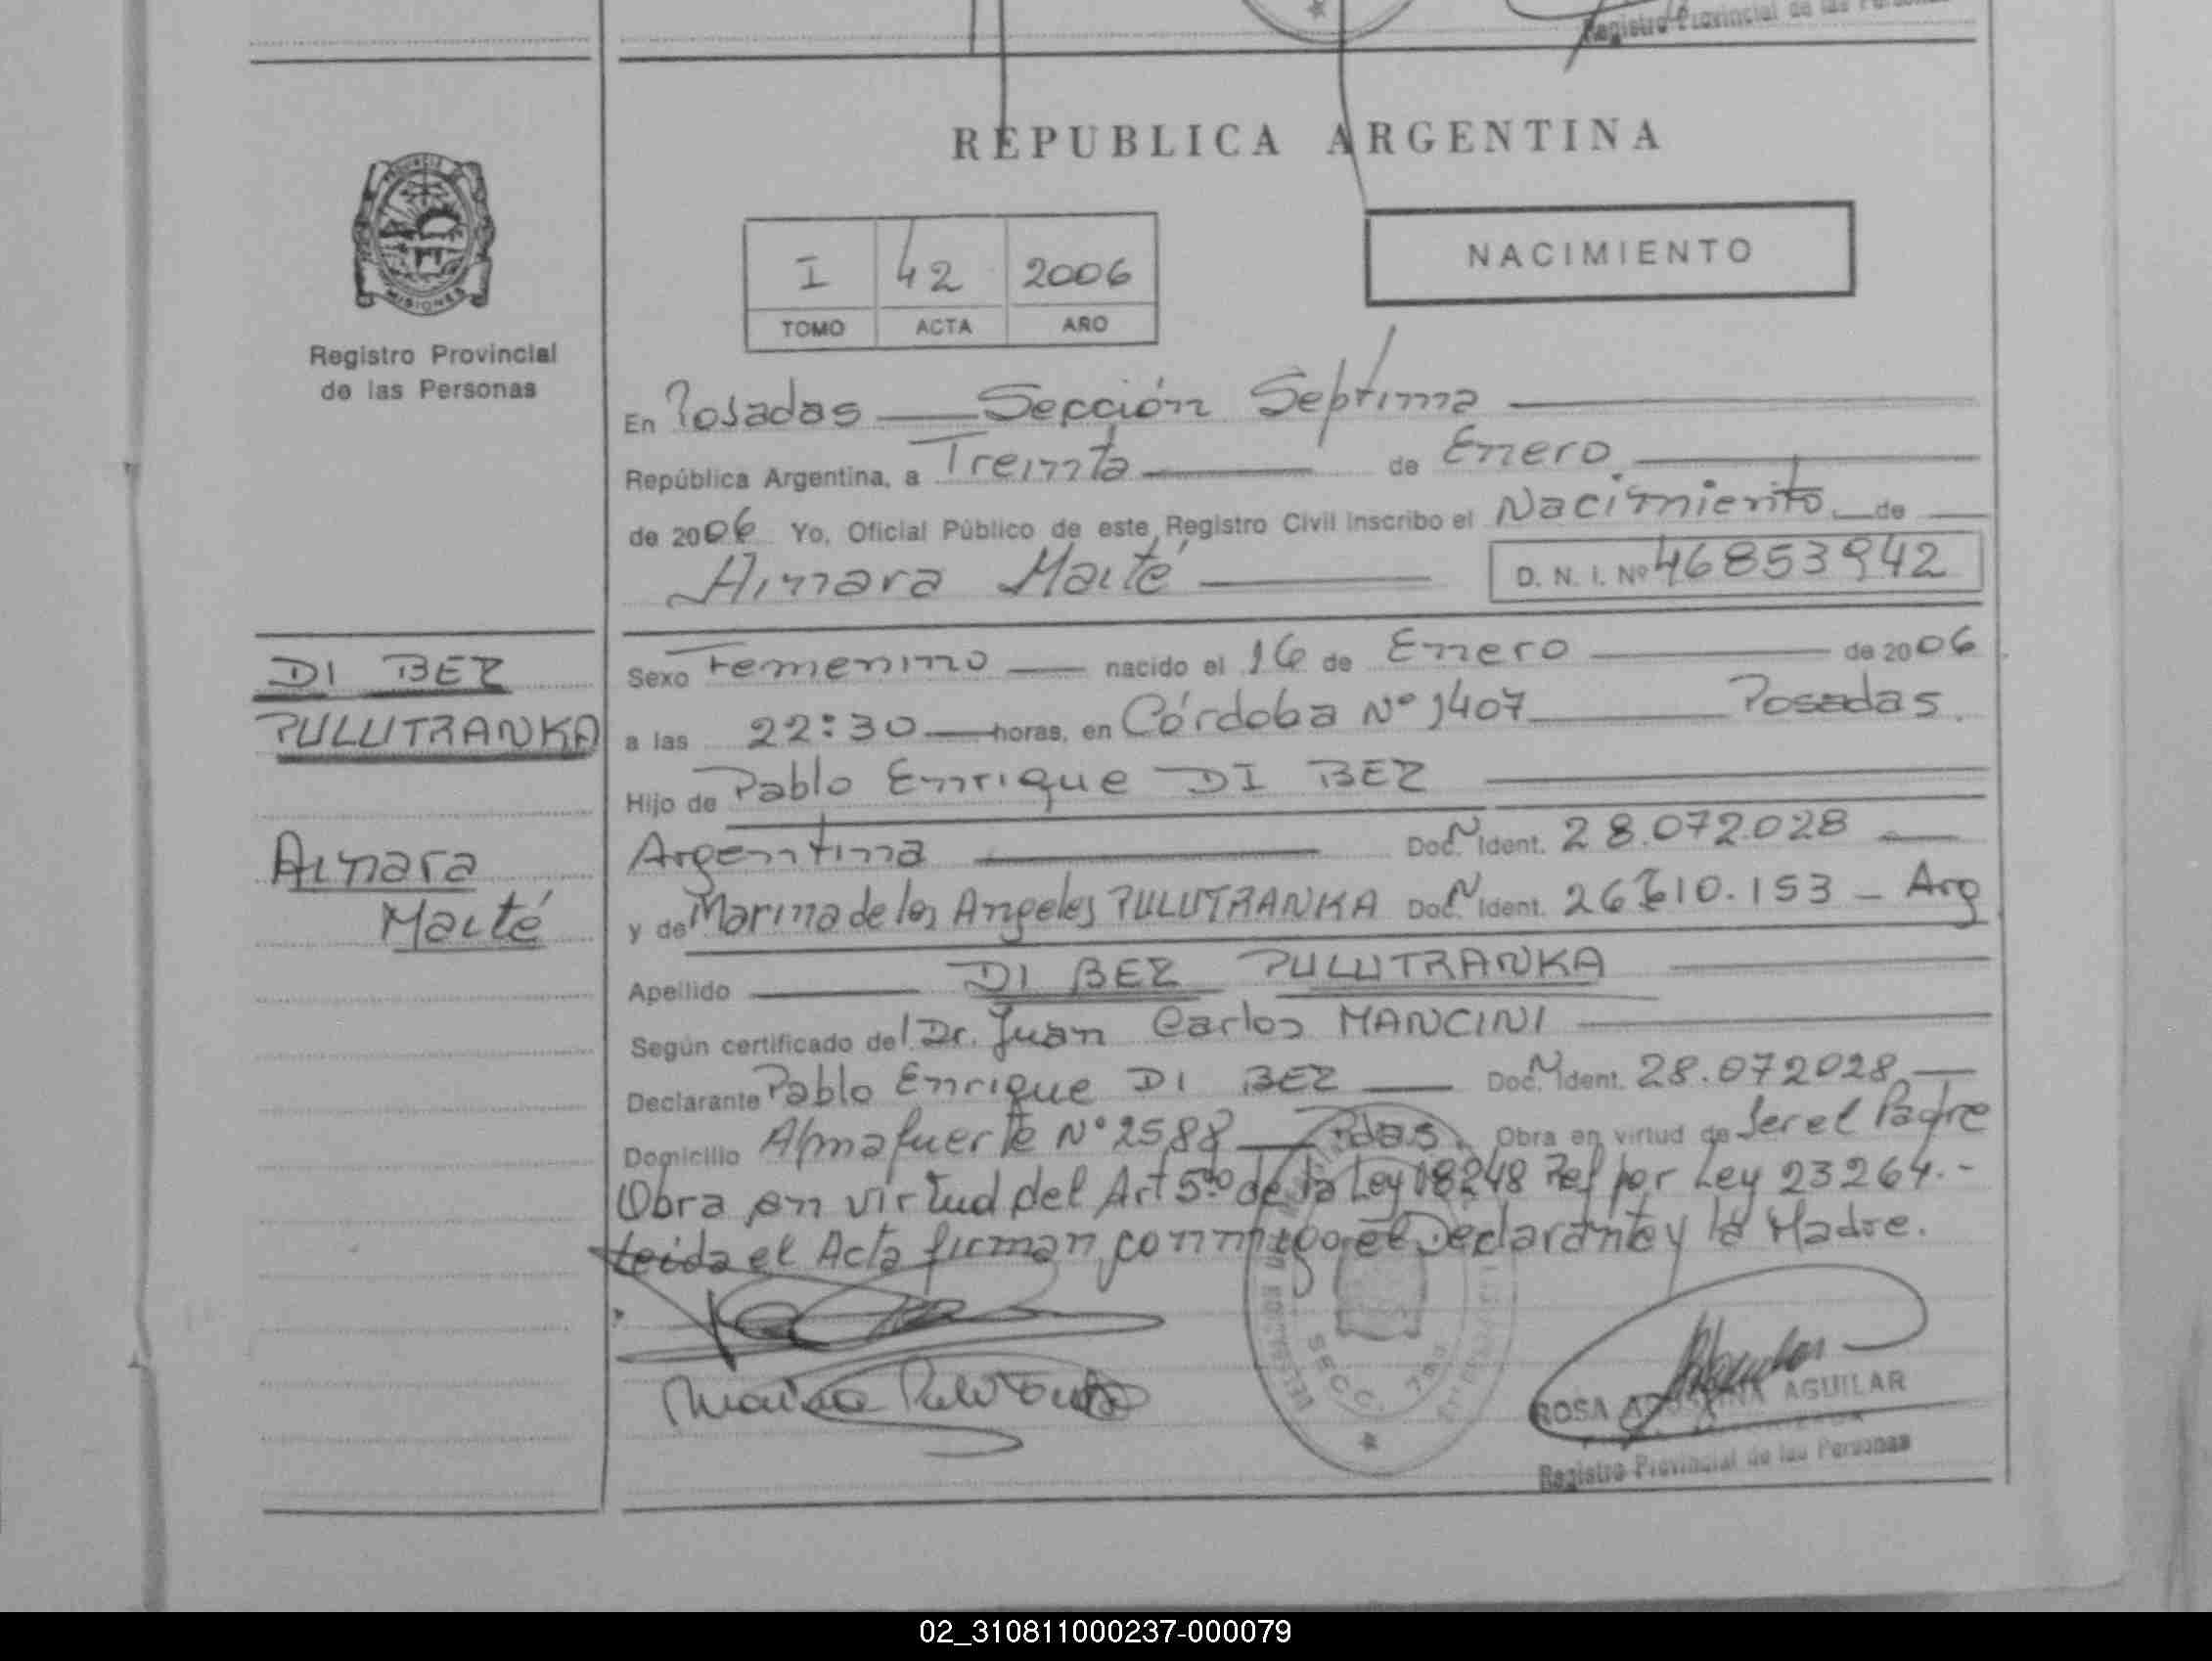 Registro Provincial de las Personas
REPUBLICA ARGENTINA
PROVINCIA
MISIONES
Registro Provincial
de las Personas
I 42 2006
TOMO ACTA AÑO
NACIMIENTO
En Posadas — Sección Septima
República Argentina, a Treinta de Enero
de 2006 Yo, Oficial Público de este Registro Civil inscribo el Nacimiento de
Ainara Maité D. N. I. Nº 46853942
DI BEZ
PULUTRANKA
Ainara
Maité
Sexo Femenino nacido el 16 de Enero de 2006
a las 22:30 horas, en Córdoba Nº 1407 Posadas.
Hijo de Pablo Enrique DI BEZ
Argentina Doc. N Ident. 28.072.028
y de Marina de los Angeles PULUTRANKA Doc. N Ident. 26.610.153 - Arg
Apellido DI BEZ PULUTRANKA
Según certificado del Dr. Juan Carlos MANCINI
Declarante Pablo Enrique DI BEZ Doc. N Ident. 28.072028
Domicilio Almafuerte Nº 2588 Pdas. Obra en virtud de Ser el Padre
Obra en virtud del Art 5to de la Ley 18248 Ref por Ley 23264.-
Leida el Acta firman conmigo el Declarante y la Madre.
SECC. 7ma
ROSA AGUILAR
Registro Provincial de las Personas
02_310811000237-000079